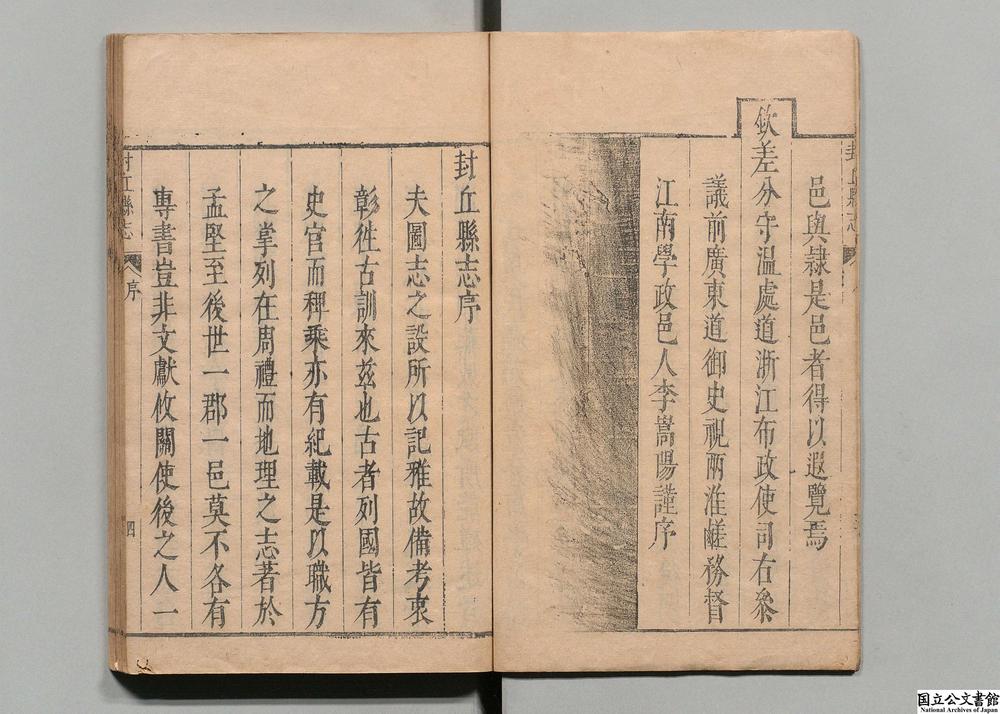 邑與隸是邑者得以遐覽焉
欽差分守温處道浙江布政使司右叅
議前廣東道御史視兩淮鹺務督
江南學政邑人李嵩陽謹序
封丘縣志序
夫圖志之設所以記雅故備考衷
彰徃古訓來兹也古者列國皆有
史官而稗乗亦有紀載是以職方
之掌列在周禮而地理之志著於
孟堅至後世一郡一邑莫不各有
專書豈非文獻攸關使後之人一
封丘縣志
序
四
国立公文書館
National Archives of Japan